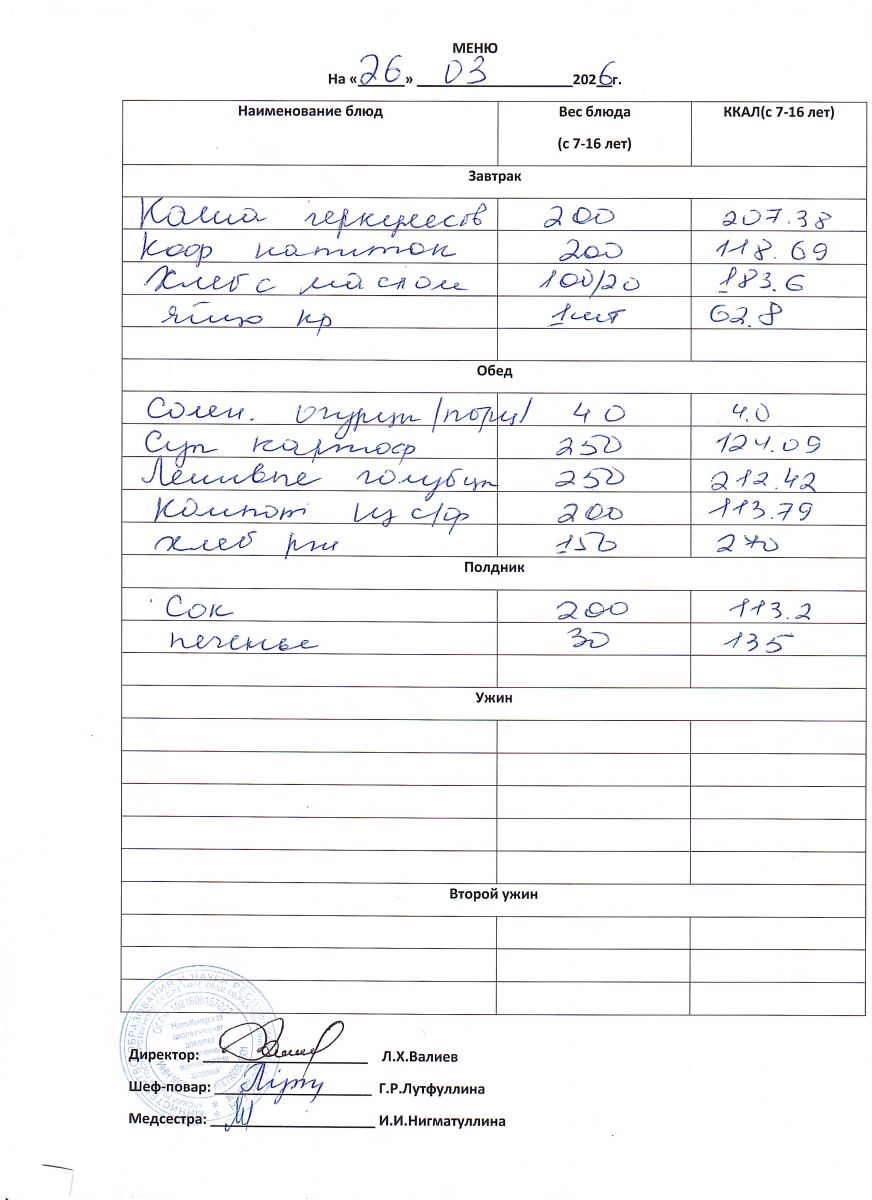 МЕНЮ
На «26» 03 2026г.
Наименование блюд Вес блюда (с 7-16 лет) ККАЛ(с 7-16 лет)
Завтрак
Каша геркулесов 200 207.38
Коф напиток 200 118.69
Хлеб с маслом 100/20 183.6
яйцо кр 1шт 62.8
Обед
Солен. огурцы /порц/ 40 4.0
Суп картоф 250 124.09
Ленивые голубцы 250 212.42
Компот из с/ф 200 113.79
хлеб рж 150 270
Полдник
Сок 200 113.2
печенье 30 135
Ужин
Второй ужин
Директор: Л.Х.Валиев
Шеф-повар: Г.Р.Лутфуллина
Медсестра: И.И.Нигматуллина